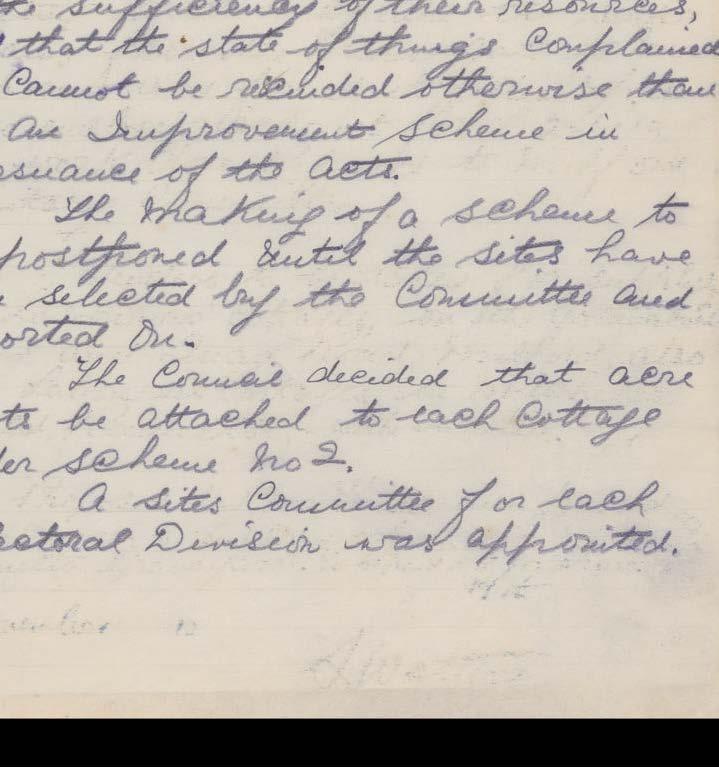 the sufficiency of their resources,
that the state of things Complained
Cannot be remided otherwise than
An Improvement Scheme in
esuance of the Acts.
The Making of a scheme to
postponed until the sites have
selected by the Committee and
orted On.
The Council decided that acre
ts be attached to each Cottage
er scheme No 2.
A sites Committee for each
ectoral Division was appointed.